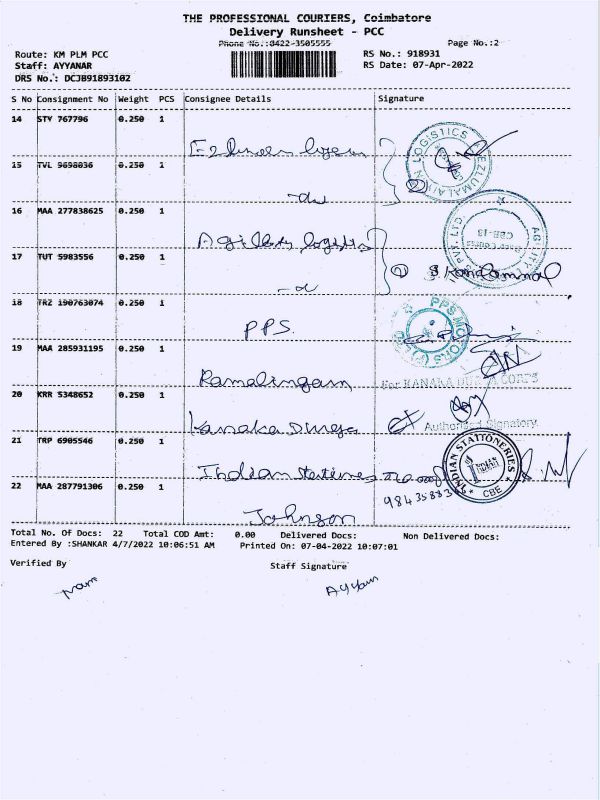 THE PROFESSIONAL COURIERS, Coimbatore
Delivery Runsheet - PCC
Phone No.:0422-3505555 Page No.:2
Route: KM PLM PCC RS No.: 918931
Staff: AYYANAR RS Date: 07-Apr-2022
DRS No.: DCJB91893102
S No Consignment No Weight PCS Consignee Details Signature
14 STV 767796 0.250 1
LOGISTICS
15 TVL 9698036 0.250 1
16 MAA 277838625 0.250 1
Agility logistics
AGILITY PVT. LTD.
CBE-13
17 TUT 5983556 0.250 1
② Skandammal
18 TRZ 190763074 0.250 1
PPS.
PPS MOTORS (P) LTD
19 MAA 285931195 0.250 1
Ramalingam
For KANAKA DURGA CORPS
20 KRR 5348652 0.250 1
Kanaka Durga
Authorised Signatory.
21 TRP 6905546 0.250 1
Indian
INDIAN STATIONERIES
* CBE *
22 MAA 287791306 0.250 1
Johnson
Total No. Of Docs: 22 Total COD Amt: 0.00 Delivered Docs: Non Delivered Docs:
Entered By :SHANKAR 4/7/2022 10:06:51 AM Printed On: 07-04-2022 10:07:01
Verified By Staff Signature
Ayyanar